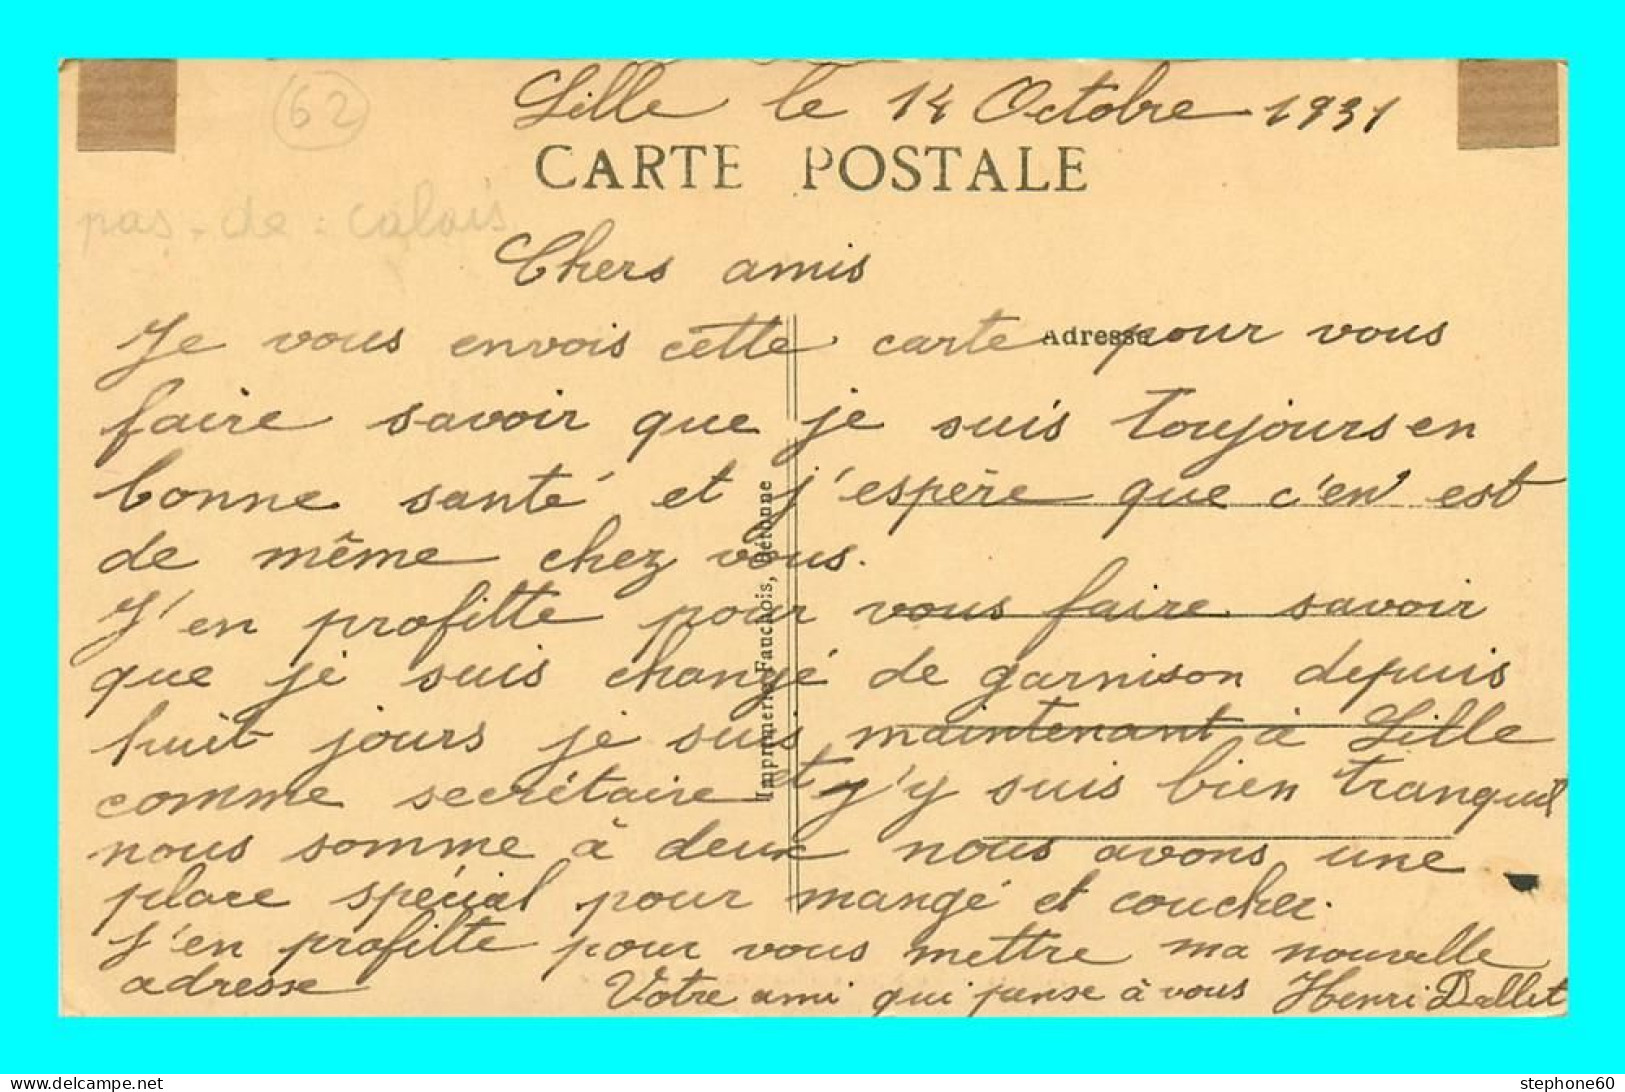 Lille le 14 Octobre 1931
62
CARTE POSTALE
pas-de-calais
Chers amis
Je vous envois cette carte pour vous
Adresse
faire savoir que je suis toujours en
bonne santé et j'espère que c'en est
de même chez vous.
J'en profitte pour vous faire savoir
que je suis changé de garnison depuis
huit jours je suis maintenant à Lille
comme secrétaire et j'y suis bien tranquil
nous somme à deux nous avons une
place spécial pour mangé et coucher.
J'en profitte pour vous mettre ma nouvelle
adresse
Votre ami qui panse à vous Henri Dallet
Imprimerie Fauchois, Béthune
stephone60